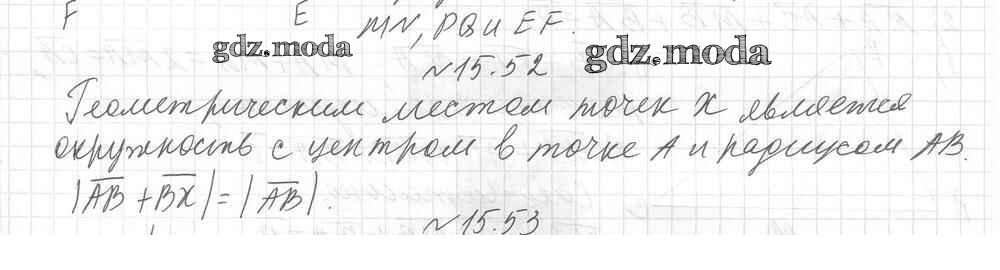 F E MN, PQ и EF.
gdz.moda gdz.moda
№15.52
Геометрическим местом точек X является
окружность с центром в точке A и радиусом AB.
|AB + BX| = |AB|.
№15.53